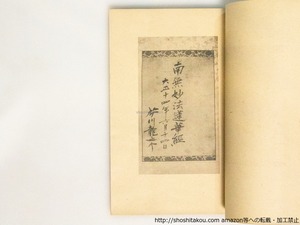 南無妙法蓮華經
大正十四年八月十四日
芥川龍之介
http://shoshitakou.com amazon等への転載・加工禁止